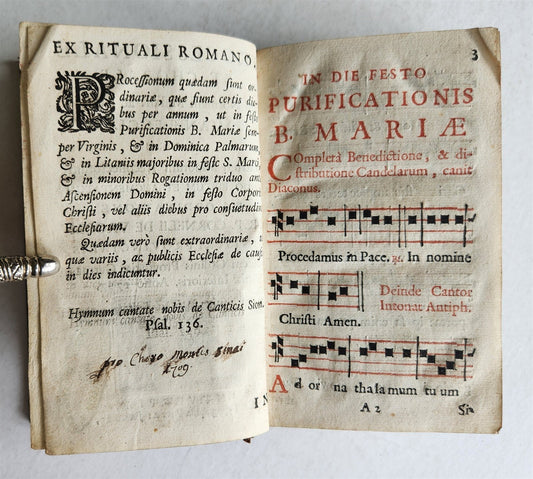 EX RITUALI ROMANO.
PRocessionum quædam sunt or-
dinariæ, quæ fiunt certis die-
bus per annum, ut in festo
Purificationis B. Mariæ sem-
per Virginis, & in Dominica Palmarum,
& in Litaniis majoribus in festo S. Marci,
& in minoribus Rogationum triduo ante
Ascensionem Domini, in festo Corporis
Christi, vel aliis diebus pro consuetudine
Ecclesiarum.
Quædam verò sunt extraordinariæ,
quæ variis, ac publicis Ecclesiæ de
in dies indicuntur.
Hymnum cantate nobis de Canticis Sion.
Psal. 136.
pro Choro Montis Sinai
1709
IN
3
IN DIE FESTO
PURIFICATIONIS
B. MARIÆ
COmpletâ Benedictione, & di-
stributione Candelarum, canit
Diaconus.
Procedamus in Pace. ℞. In nomine
Deinde Cantor
Intonat Antiph.
Christi Amen.
Ad or na thalamum tuum
A 2